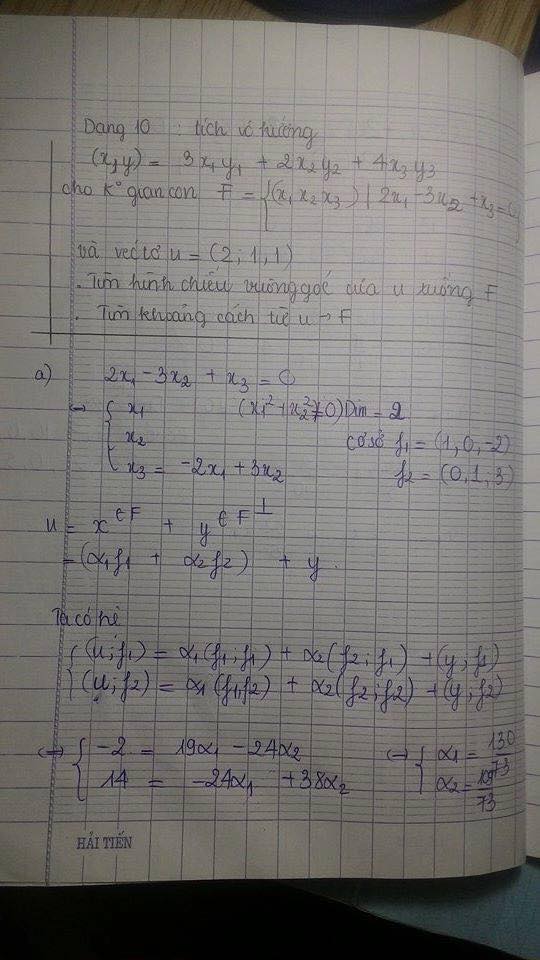 Dạng 10 : tích vô hướng
(x,y) = 3x₁y₁ + 2x₂y₂ + 4x₃y₃
cho k° gian con F = {(x₁ x₂ x₃) | 2x₁ - 3x₂ + x₃ = 0
và véctơ u = (2; 1, 1)
. Tìm hình chiếu vuông góc của u xuống F
. Tìm khoảng cách từ u → F
a) 2x₁ - 3x₂ + x₃ = 0
↔ { x₁ (x₁² + x₂² ≠ 0) Dim = 2
x₂ cơ sở f₁ = (1, 0, -2)
x₃ = -2x₁ + 3x₂ f₂ = (0, 1, 3)
u = x ∈ F + y ∈ F⊥
= (α₁f₁ + α₂f₂) + y.
Ta có hệ
{ (u; f₁) = α₁(f₁; f₁) + α₂(f₂; f₁) + (y, f₁)
(u; f₂) = α₁(f₁, f₂) + α₂(f₂; f₂) + (y, f₂)
↔ { -2 = 19α₁ - 24α₂ ↔ { α₁ = 130/73
14 = -24α₁ + 38α₂ α₂ = /73
HẢI TIẾN